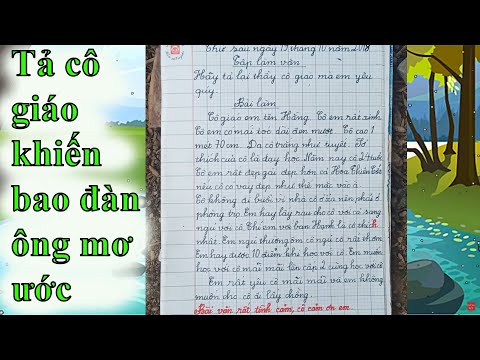 Tả cô
giáo
khiến
bao đàn
ông mơ
ước
Thứ sáu ngày 19 tháng 10 năm 2018
Tập làm văn
Hãy tả lại thầy cô giáo mà em yêu
quý.
Bài làm
Cô giáo em tên Hồng. Cô em rất xinh
Cô em có mái tóc dài đen mượt. Cô cao 1
mét 70 cm. Da cô trắng như tuyết.
thích của cô là dạy học. Năm nay cô 2 tuổi.
Cô em rất đẹp gái đẹp hơn cả Hoa Thiên Cốt
nếu cô có váy đẹp như thế mặc vào ạ
Cô không đi buổi vì nhà cô ở xa nên phải ở
phòng trọ. Em hay lấy rau cho cô với cả sang
ngủ với cô. Chỉ em với bạn Hạnh là cô thích
nhất. Em ngủ thường ôm cô ngủ cô rất thơm
Em hay được 10 điểm khi học với cô. Em muốn
học với cô mãi mãi lên cấp 2 cũng học với cô.
Em rất yêu cô mãi mãi và em không
muốn cho cô đi lấy chồng.
Bài văn rất tình cảm, cô cảm ơn em.